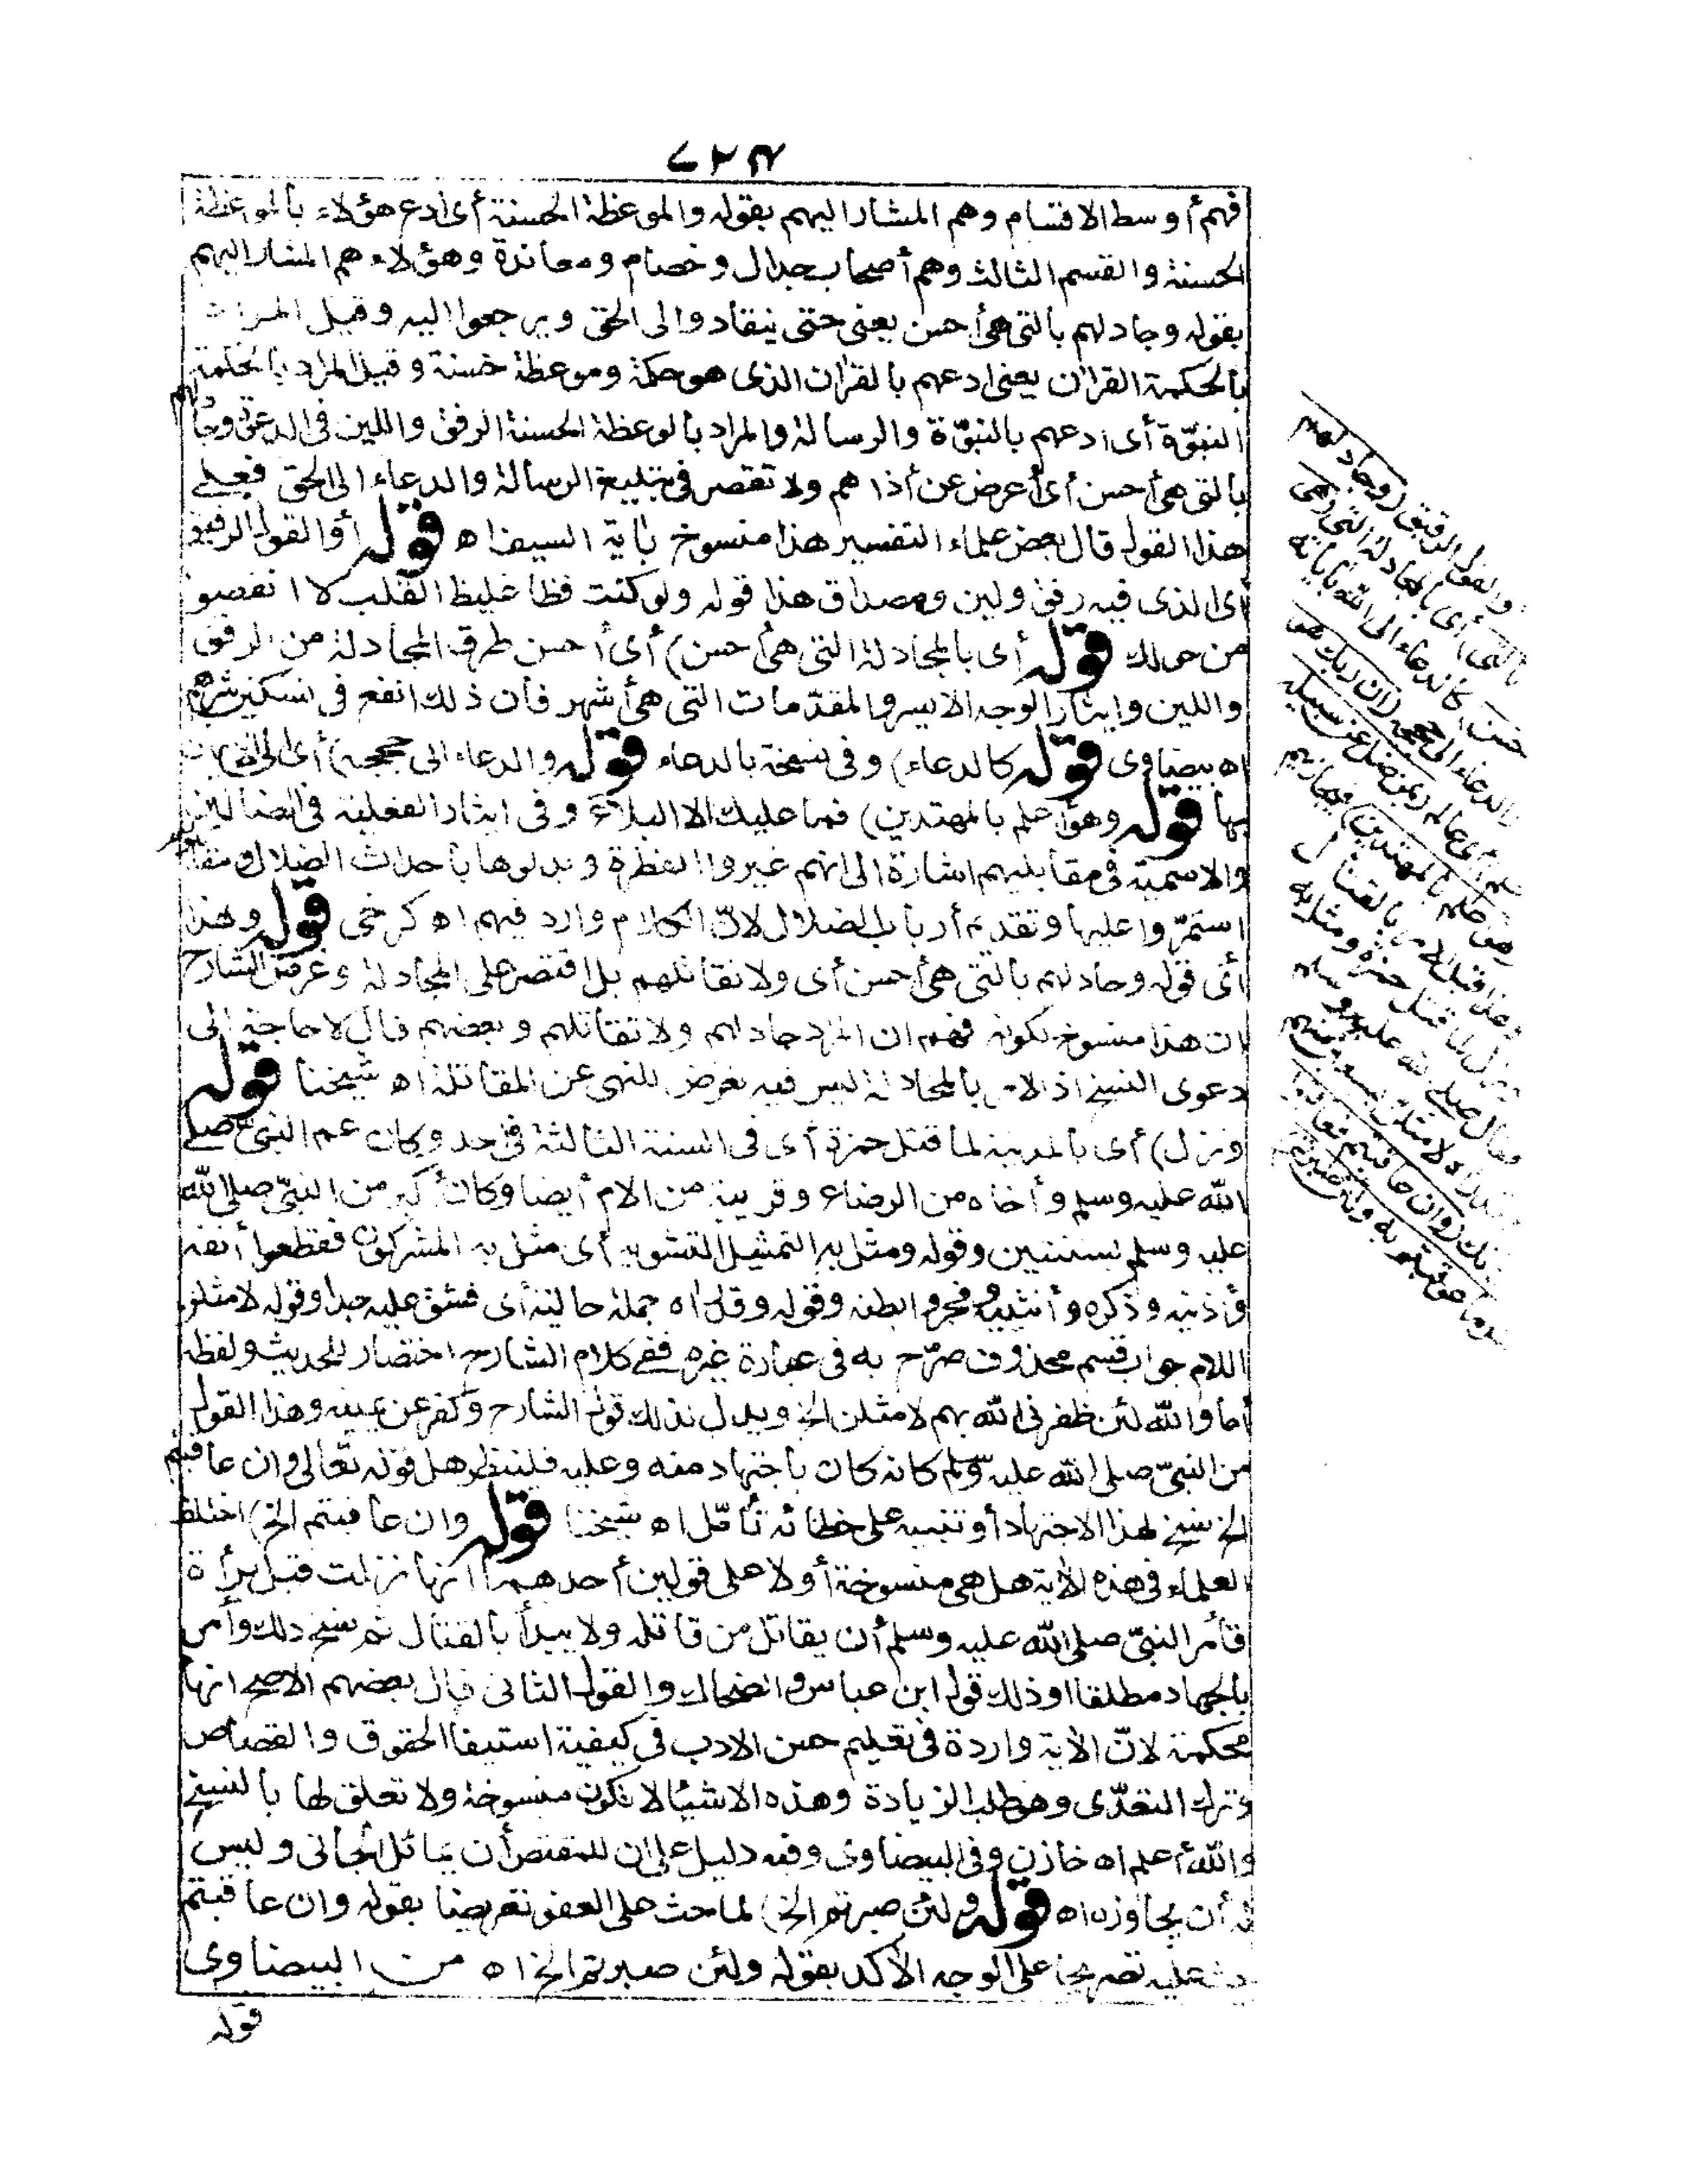 فهم أوسط الاقسام وهم المشار اليهم بقوله والموعظة الحسنة أى ادع هؤلاء بالموعظة
الحسنة والقسم الثالث وهم أصحاب جدال وخصام ومعاندة وهؤلاء هم المشار اليهم
بقوله وجادلهم بالتى هى أحسن يعنى حتى ينقادوا الى الحق ويرجعوا اليه وقيل المراد
بالحكمة القرآن يعنى ادعهم بالقرآن الذى هو حكمة وموعظة حسنة وقيل المراد بالحكمة
النبوّة أى ادعهم بالنبوّة والرسالة والمراد بالموعظة الحسنة الرفق واللين فى الدعوة وجادلهم
بالتى هى أحسن أى أعرض عن أذاهم ولا تقصر فى تبليغ الرسالة والدعاء الى الحق فعلى
هذا القول قال بعض علماء التفسير هذا منسوخ بآية السيف اه قوله أو القول الرفيق
أى الذى فيه رفق ولين ومصداق هذا قوله ولو كنت فظا غليظ القلب لا انفضوا
من حولك قوله أى بالمجادلة التى هى أحسن) أى أحسن طرق المجادلة من الرفق
واللين وايثار الوجه الايسر والمقدّمات التى هى أشهر فان ذلك انفع فى تسكين شرّهم
اه بيضاوى قوله كالدعاء) وفى نسخة بالدعاء قوله والدعاء الى حججه) أى الى
بها قوله وهو أعلم بالمهتدين) فما عليك الا البلاغ وفى ايثار الفعلية فى الضالين
والاسمية فى مقابليهم اشارة الى انهم غيروا الفطرة وبدلوها باحداث الضلال ومقابلوهم
استمرّوا عليها وتقديم أرباب الضلال لانّ الكلام وارد فيهم اه كرخى قوله وهذا
أى قوله وجادلهم بالتى هى أحسن أى ولا تقاتلهم بل اقتصر على المجادلة وغرض الشارح
ان هذا منسوخ لكونه فهم ان المراد جادلهم ولا تقاتلهم وبعضهم قال لا حاجة الى
دعوى النسخ اذ الامر بالمجادلة ليس فيه تعرض للنهى عن المقاتلة اه شيخنا قوله
ونزل) أى بالمدينة لما قتل حمزة أى فى السنة الثالثة فى أحد وكان عم النبى صلى
الله عليه وسلم وأخاه من الرضاع وقريبه من الام أيضا وكان أكبر من النبىّ صلى الله
عليه وسلم بسنتين وقوله ومثل به التمثيل التشويه أى مثل به المشركون فقطعوا أنفه
وأذنيه وذكره وأنثييه وفجروا بطنه وقوله وقد رآه جملة حالية أى فشق عليه جدا وقوله لامثلن
اللام جواب قسم محذوف صرّح به فى عبارة غيره ففى كلام الشارح اختصار للحديث ولفظه
أما والله لئن ظفرنى الله بهم لامثلن الخ ويدل لذلك قول الشارح وكفر عن يمينه وهذا القول
من النبىّ صلى الله عليه وسلم كانه كان باجتهاد منه وعليه فلينظر هل قوله تعالى وان عاقبتم
الخ نسخ لهذا الاجتهاد أو تنبيه على خطائه تأمّل اه شيخنا قوله وان عاقبتم الخ) اختلف
العلماء فى هذه الآية هل هى منسوخة أولا على قولين أحدهما انها نزلت قبل براءة
فأمر النبىّ صلى الله عليه وسلم أن يقاتل من قاتله ولا يبدأ بالقتال ثم نسخ ذلك وأمر
بالجهاد مطلقا وذلك قول ابن عباس والضحاك والقول الثانى قال بعضهم الاصح انها
محكمة لانّ الآية واردة فى تعليم حسن الادب فى كيفية استيفا الحقوق والقصاص
وترك التعدّى وهو طلب الزيادة وهذه الاشيا لا تكون منسوخة ولا تعلق لها بالنسخ
والله أعلم اه خازن وفى البيضاوى وفيه دليل على ان للمقتص أن يماثل الجانى وليس
له أن يجاوزه اه قوله ولئن صبرتم الخ) لما حث على العفو تعريضا بقوله وان عاقبتم
حث عليه تصريحا على الوجه الآكد بقوله ولئن صبرتم الخ اه من البيضاوى
قوله
والقول الرقيق (وجادلهم
بالتى) أى بالمجادلة التى (هى
أحسن) كالدعاء الى الله بآياته
والدعاء الى حججه (ان ربك هو
أعلم) أى عالم (بمن ضل عن سبيله
وهو أعلم بالمهتدين) فيجازيهم
وهذا قبل الامر بالقتال
ونزل لما قتل حمزة ومثل به
فقال صلى الله عليه وسلم
وقد رآه لامثلن بسبعين منهم
مكانك (وان عاقبتم فعاقبوا
بمثل ما عوقبتم به ولئن صبرتم)